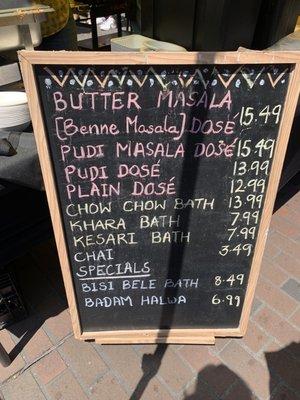 BUTTER MASALA
[Benne Masala] DOSÉ 15.49
PUDI MASALA DOSÉ 15.49
PUDI DOSÉ 13.99
PLAIN DOSÉ 12.99
CHOW CHOW BATH 13.99
KHARA BATH 7.99
KESARI BATH 7.99
CHAI 3.49
SPECIALS
BISI BELE BATH 8.49
BADAM HALWA 6.99